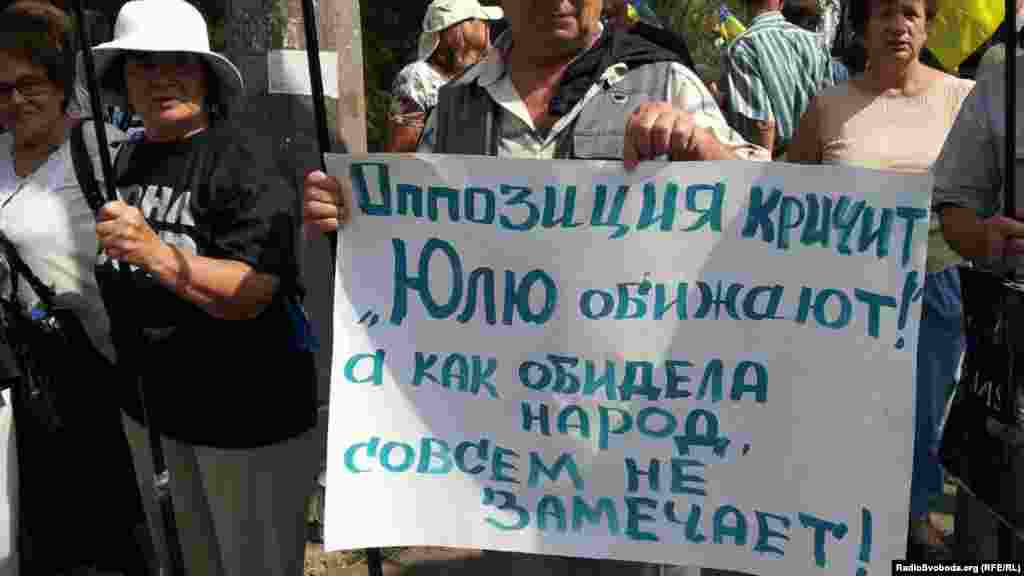 Оппозиция кричит
„Юлю обижают!
а как обидела
народ,
совсем не
замечает!
RadioSvoboda.org (RFE/RL)